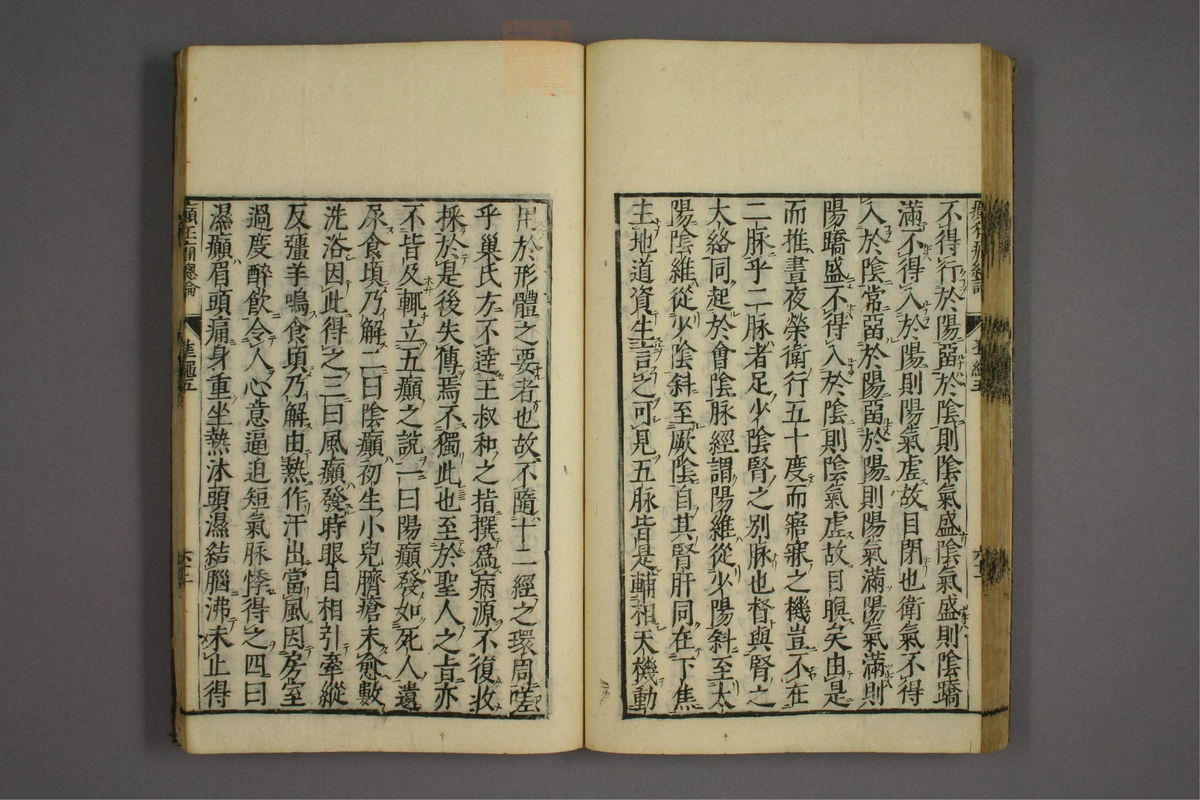 不得行於陽畱於陰則陰氣盛陰氣盛則陰蹻
滿不得入於陽則陽氣虛故目閉也衛氣不得
入於陰常畱於陽畱於陽則陽氣滿陽氣滿則
陽蹻盛不得入於陰則陰氣虛故目瞑矣由是
而推晝夜榮衛行五十度而寤寐之機豈不在
二脉乎二脉者足少陰腎之別脉也督與腎之
大絡同起於會陰脉經謂陽維從少陽斜至太
陽陰維從少陰斜至厥陰自其腎肝同在下焦
主地道資生言之可見五脉皆是輔相天機動
用於形體之要者也故不隨十二經之環周嗟
乎巢氏方不達王叔和之指撰爲病源不復收
採於是後失傳焉不獨此也至於聖人之旨亦
不皆及輒立五癲之說一曰陽癲發如死人遺
尿食頃乃解二曰陰癲初生小兒臍瘡未愈數
洗浴因此得之三曰風癲發時眼目相引牽縱
反彊羊鳴食頃乃解由熱作汗出當風因房室
過度醉飲令人心意逼迫短氣脉悸得之四曰
濕癲眉頭痛身重坐熱沐頭濕結腦沸未止得